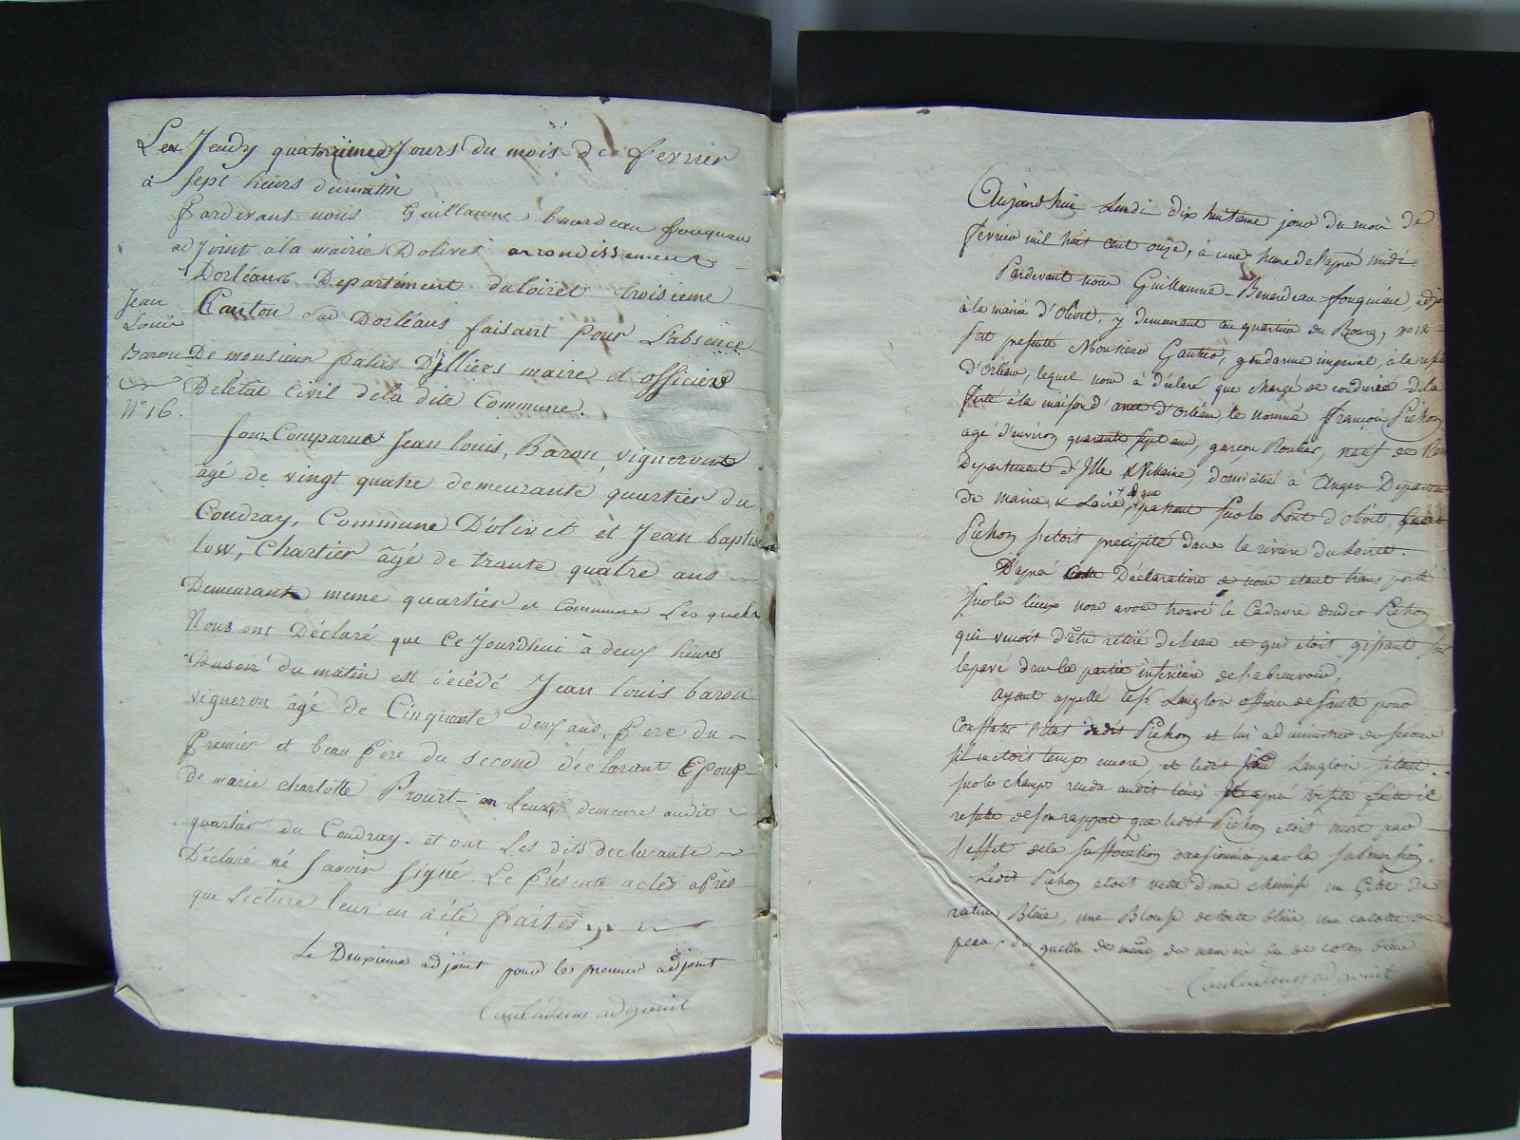 Le Jeudy quatorzieme Jours du mois de fevrier
à sept heurs dumatin
pardevant nous Guillaume fouqueau
adjoint a la mairie Dolivet arrondissement
Dorléans Departément duloiret troisieme
Canton Sud Dorléans faisant pour Labsence
De monsieur patas Dilliers maire et officier
Deletat Civil déla dite Commune.
Jean
Louis
Baron
N° 16.
Son Comparue Jean louis, Baron, vigneront
agé de vingt quatre demeurante quartier du
Coudray, Commune D'olivet et Jean baptiste
Chartier âgé de trante quatre ans
Demeurant meme quartier et Commune Les quels
Nous ont Déclaré que Ce Jourdhui à deux heures
du matin est décédé Jean louis baron
vigneron âgé de Cinquante deux ans, pere du
premier et beau pere du second déclarant Epoux
de marie charlotte Proust demeure audit
quartier du Coudray. et ont Les dits declarante
Déclaré né savoir signé Le présente actes après
que Lecture leur en a été faites
Le Deuxieme adjoint pour les premier adjoint
adjoint
Aujourd'hui Lundi dix huitieme jour du mois de
fevrier mil huit cent onze, à une heure de midi
Pardevant nous Guillaume fouqueau, adj
à la mairie d'olivet, y demeurant au quartier du Bourg,
fait presente Monsieur Gautier, gendarme imperial, à la
d'Orléans, lequel nous à déclaré que chargé de conduire de la
ferté à la maison d'arret d'Orléans, le nommé françois Pichon
agé d'environ quarante sept ans, garçon Roulier, natif de
departement d'Ille & Villaine, domicilié à Angers Departement
de maine & Loire, que passant sur le Pont d'olivet,
Pichon s'etoit precipité dans la riviere du Loiret.
D'après cette Déclaration et nous etant transporté
sur les lieux nous avons trouvé le Cadavre dudit Pichon
qui venoit d'être retiré de l'eau et qui etoit gissant sur
le pavé dans la partie inférieure de l'abreuvoir,
ayant appellé le S. Langlois officier de santé pour
Constater l'etat dudit Pichon et lui administrer du secours
s'il en etoit temps encore et ledit Langlois s'etant
sur le champ rendu audit lieu après visite faite il
resulte de son rapport que ledit Pichon etoit mort par
l'effet de la suffocation occasionnée par la submersion.
Ledit Pichon etoit vetu d'une chemise un Gilet de
ratine Bleue, une Blouse de toile bleue une calotte de
peau, des guettre de même
adjoint